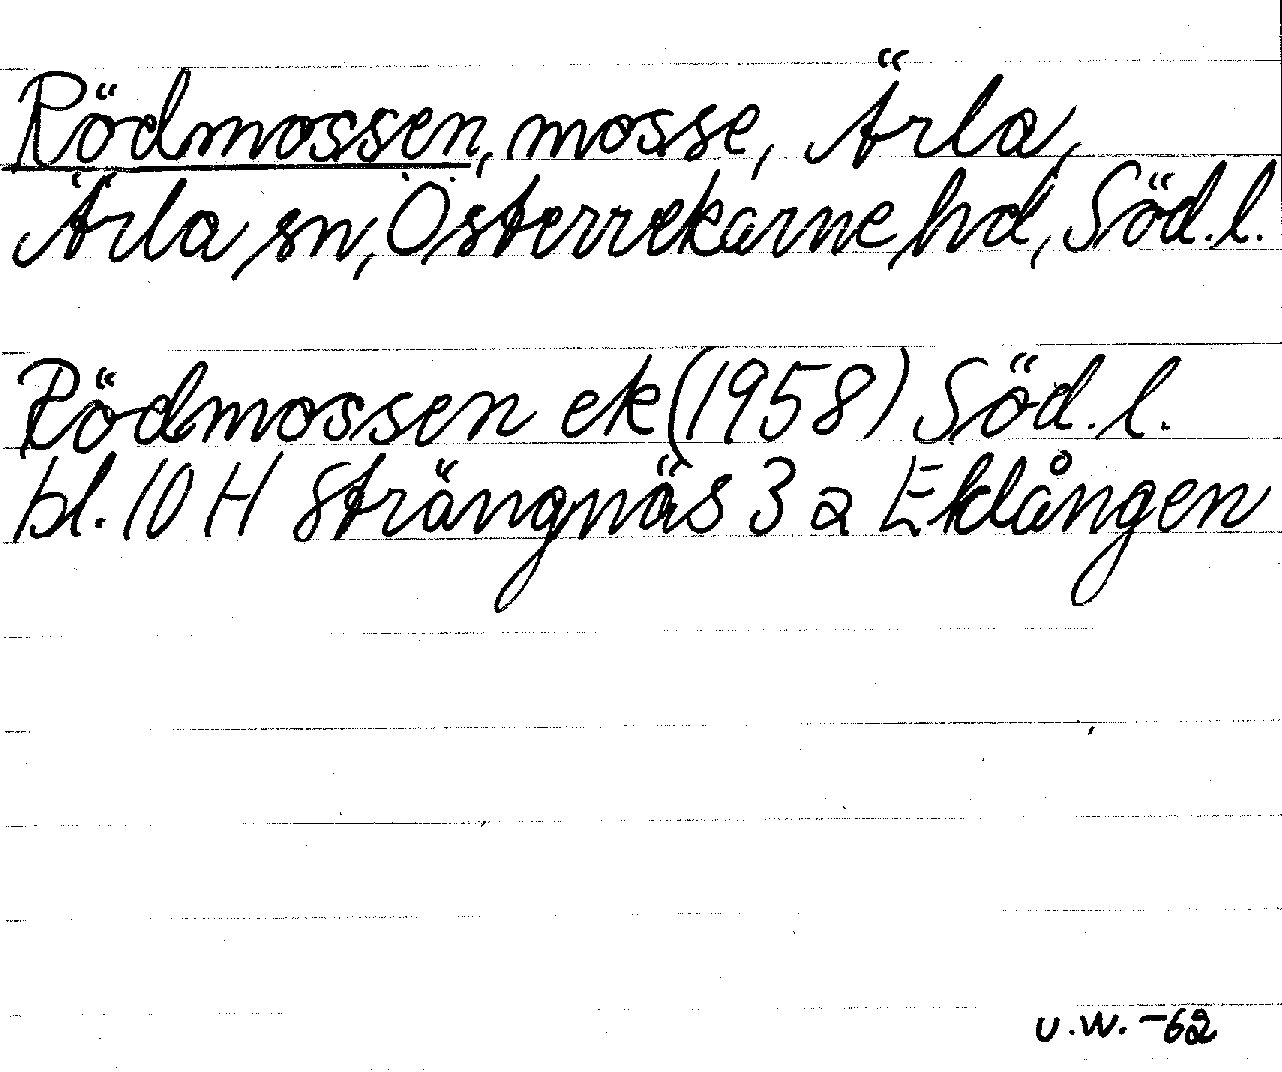 Rödmossen, mosse, Ärla,
Ärla sn, Österrekarne hd, Söd.l.
Rödmossen ek (1958) Söd.l.
bl. 10 H Strängnäs 3 a Eklången
U.W. -62